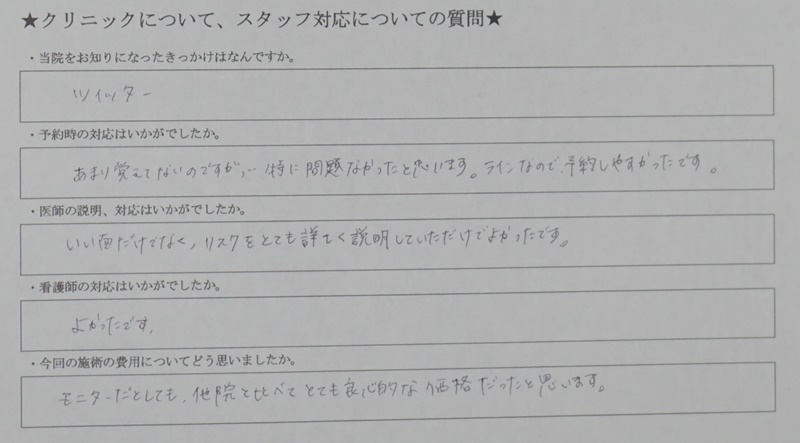 ★クリニックについて、スタッフ対応についての質問★
・当院をお知りになったきっかけはなんですか。
ツイッター
・予約時の対応はいかがでしたか。
あまり覚えてないのですが、、特に問題なかったと思います。ラインなので、予約しやすかったです。
・医師の説明、対応はいかがでしたか。
いい面だけでなく、リスクをとても詳しく説明していただけてよかったです。
・看護師の対応はいかがでしたか。
よかったです。
・今回の施術の費用についてどう思いましたか。
モニターだとしても、他院と比べてとても良心的な価格だったと思います。